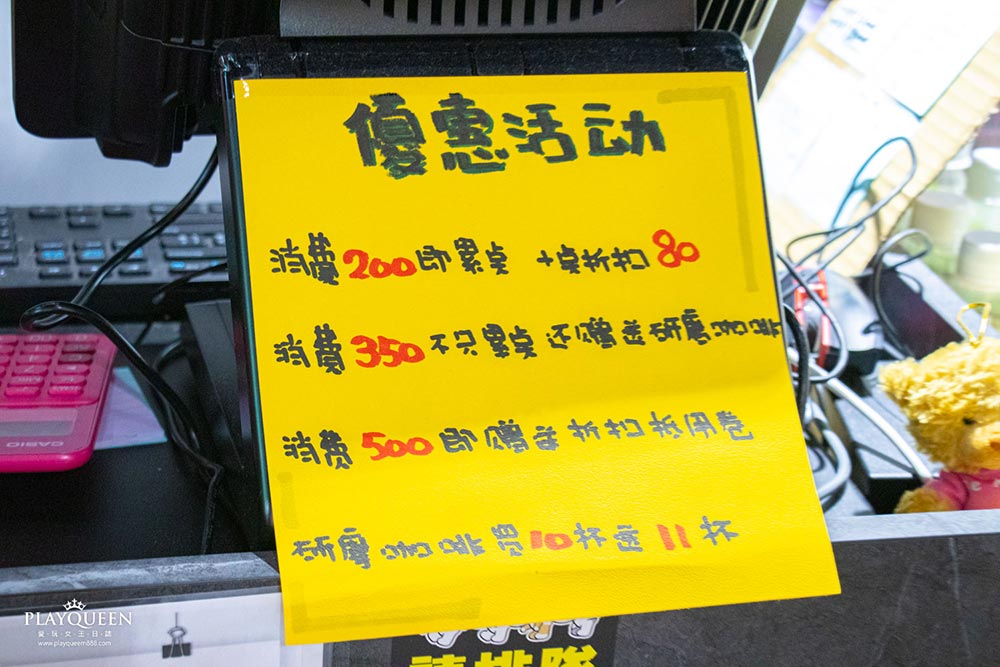 優惠活动
消費200即累點 十點折扣80
消費350不只累點还贈送研磨咖啡
消費500即贈送折扣抵用卷
研磨咖啡買10杯送11杯
CASIO
PLAYQUEEN
愛·玩·女·王·日·誌
www.playqueen888.com
請排隊